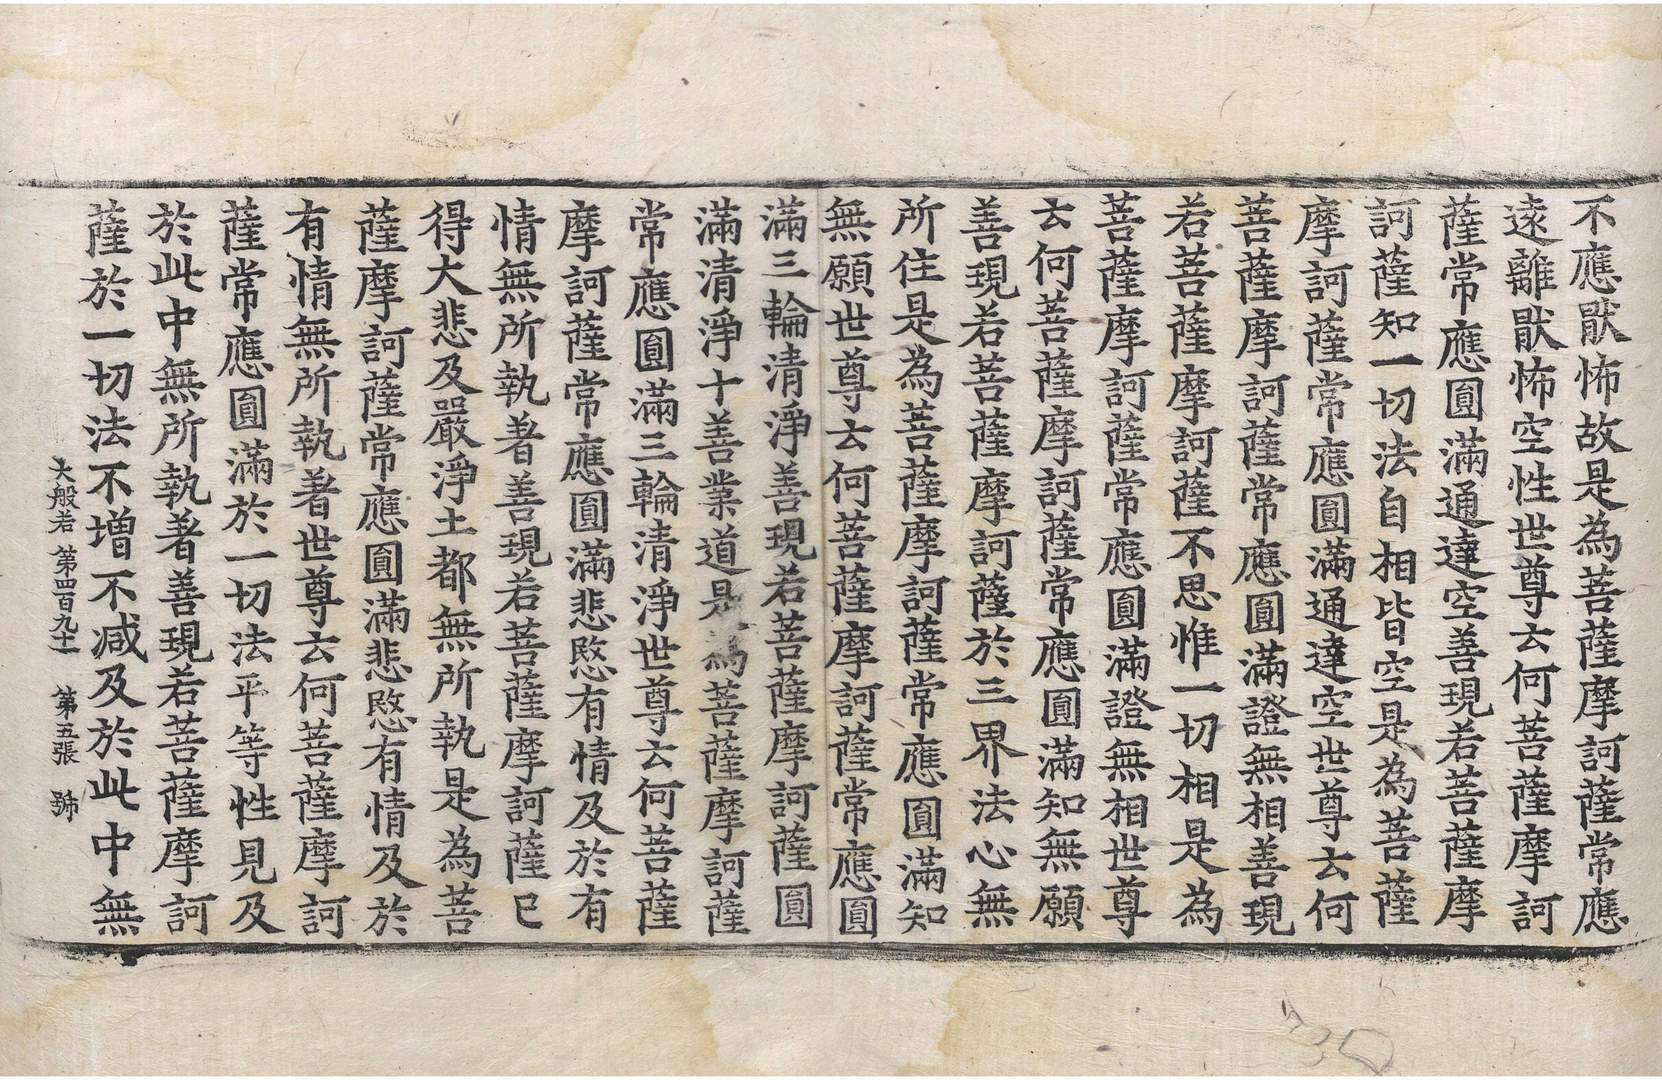 不應猒怖故是為菩薩摩訶薩常應
遠離猒怖空性世尊云何菩薩摩訶
薩常應圓滿通達空善現若菩薩摩
訶薩知一切法自相皆空是為菩薩
摩訶薩常應圓滿通達空世尊云何
菩薩摩訶薩常應圓滿證無相善現
若菩薩摩訶薩不思惟一切相是為
菩薩摩訶薩常應圓滿證無相世尊
云何菩薩摩訶薩常應圓滿知無願
善現若菩薩摩訶薩於三界法心無
所住是為菩薩摩訶薩常應圓滿知
無願世尊云何菩薩摩訶薩常應圓
滿三輪清淨善現若菩薩摩訶薩圓
滿清淨十善業道是為菩薩摩訶薩
常應圓滿三輪清淨世尊云何菩薩
摩訶薩常應圓滿悲愍有情及於有
情無所執著善現若菩薩摩訶薩已
得大悲及嚴淨土都無所執是為菩
薩摩訶薩常應圓滿悲愍有情及於
有情無所執著世尊云何菩薩摩訶
薩常應圓滿於一切法平等性見及
於此中無所執著善現若菩薩摩訶
薩於一切法不增不減及於此中無
大般若 第四百九十一 第五張 號